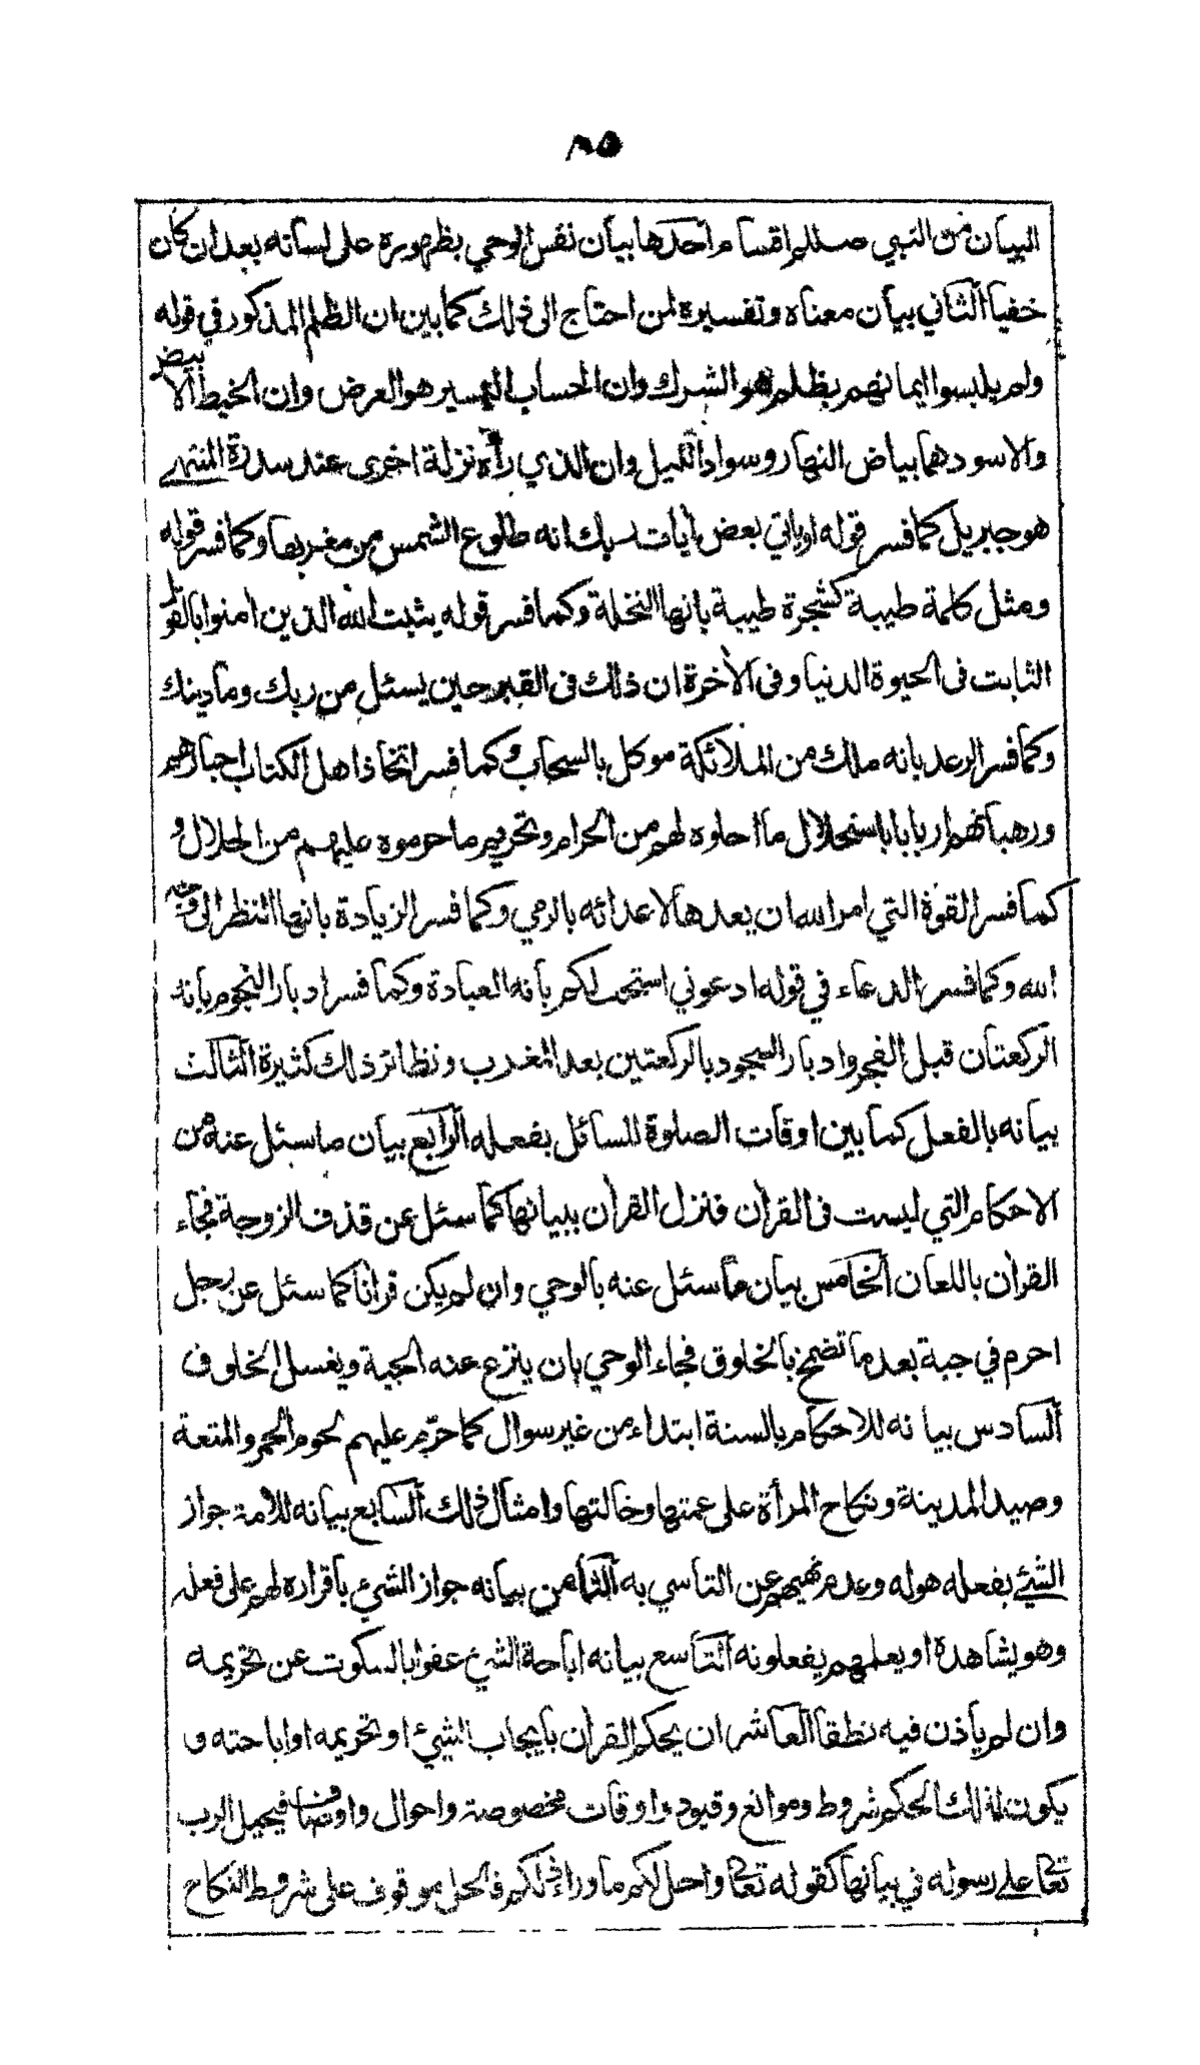 ٨٥
البيان من النبي صللم اقسام احدها بيان نفس الوحي بظهوره على لسانه بعد ان كان
خفيا الثاني بيان معناه وتفسيره لمن احتاج الى ذلك كما بين ان الظلم المذكور في قوله
ولم يلبسوا ايمانهم بظلم هو الشرك وان الحساب اليسير هو العرض وان الخيط الابيض
والاسود هما بياض النهار وسواد الليل وان الذي رآه نزلة اخرى عند سدرة المنتهى
هو جبريل كما فسر قوله او ياتي بعض أيات ربك انه طلوع الشمس من مغربها وكما فسر قوله
ومثل كلمة طيبة كشجرة طيبة بانها النخلة وكما فسر قوله يثبت الله الذين امنوا بالقول
الثابت فى الحيوة الدنيا وفى الأخرة ان ذلك فى القبر حين يسئل من ربك وما دينك
وكما فسر الرعد بانه ملك من الملائكة موكل بالسحاب وكما فسر اتخاذ اهل الكتاب احبارهم
ورهبانهم اربابا باستحلال ما احلوه لهم من الحرام وتحريم ما حرموه عليهم من الحلال و
كما فسر القوة التي امر الله ان يعدها لاعدائه بالرمي وكما فسر الزيادة بانها النظر الى وجه
الله وكما فسر الدعاء في قوله ادعوني استجب لكم بانه العبادة وكما فسر ادبار النجوم بانه
الركعتان قبل الفجر وادبار السجود بالركعتين بعد المغرب ونظائر ذلك كثيرة الثالث
بيانه بالفعل كما بين اوقات الصلوة للسائل بفعله الرابع بيان ما سئل عنه من
الاحكام التي ليست فى القرأن فنزل القرأن ببيانها كما سئل عن قذف الزوجة فجاء
القرأن باللعان الخامس بيان ما سئل عنه بالوحي وان لم يكن قرانا كما سئل عن رجل
احرم في جبة بعد ما تضمخ بالخلوق فجاء الوحي بان ينزع عنه الجبة ويغسل الخلوق
السادس بيانه للاحكام بالسنة ابتداء من غير سوال كما حرّم عليهم لحوم الحمر والمتعة
وصيد المدينة ونكاح المرأة على عمتها وخالتها وامثال ذلك السابع بيانه للامة جواز
الشئ بفعله هو له وعدم نهيهم عن التاسي به الثامن بيانه جواز الشئ باقراره لهم على فعله
وهو يشاهده او يعلمهم يفعلونه التاسع بيانه اباحة الشئ عفوا بالسكوت عن تحريمه
وان لم ياذن فيه نطقا العاشر ان يحكم القرأن بايجاب الشئ او تحريمه او اباحته و
يكون لذلك الحكم شروط وموانع وقيود واوقات مخصوصة واحوال واوصاف فيحيل الرب
تعالى على رسوله في بيانها كقوله تعالى واحل لكم ما وراء ذلكم فالحل موقوف على شروط النكاح